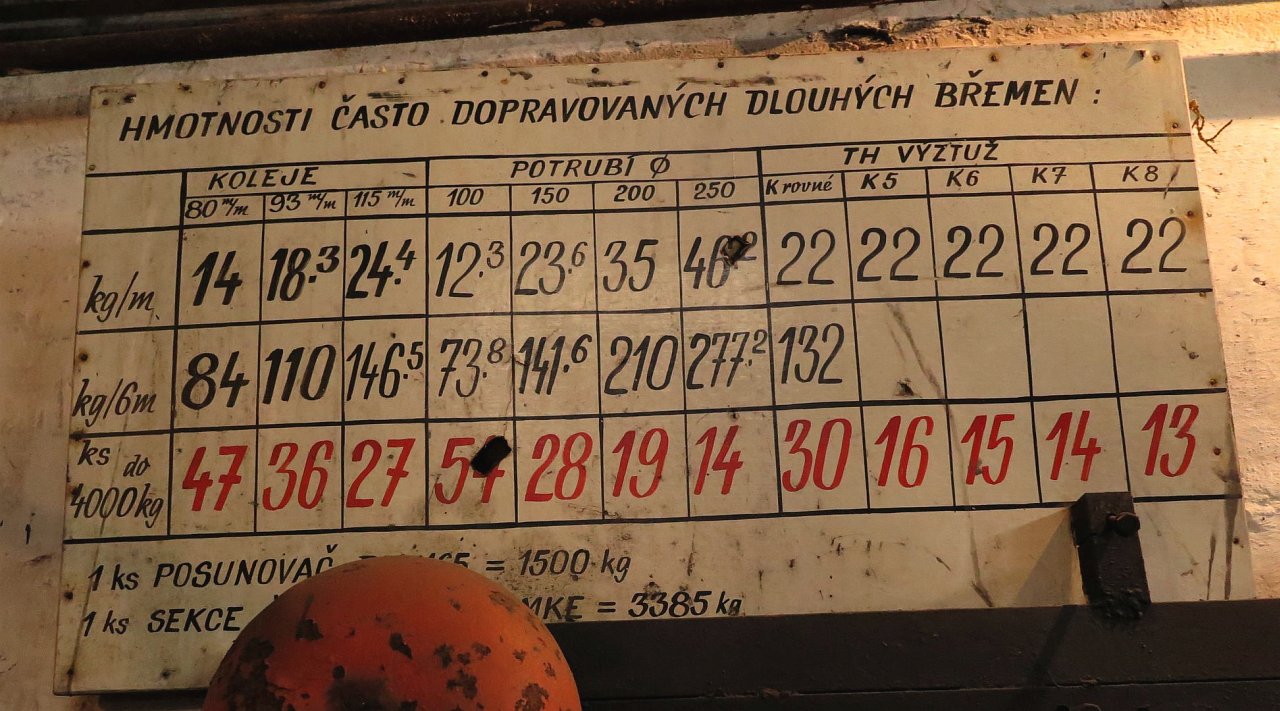 HMOTNOSTI ČASTO DOPRAVOVANÝCH DLOUHÝCH BŘEMEN :
KOLEJE POTRUBÍ Ø TH VÝZTUŽ
80 m/m 93 m/m 115 m/m 100 150 200 250 K rovné K5 K6 K7 K8
kg/m 14 18.3 24.4 12.3 23.6 35 46.2 22 22 22 22 22
kg/6m 84 110 146.5 73.8 141.6 210 277.2 132
ks do 4000kg 47 36 27 54 28 19 14 30 16 15 14 13
1 ks POSUNOVAČ = 1500 kg
1 ks SEKCE = 3385 kg